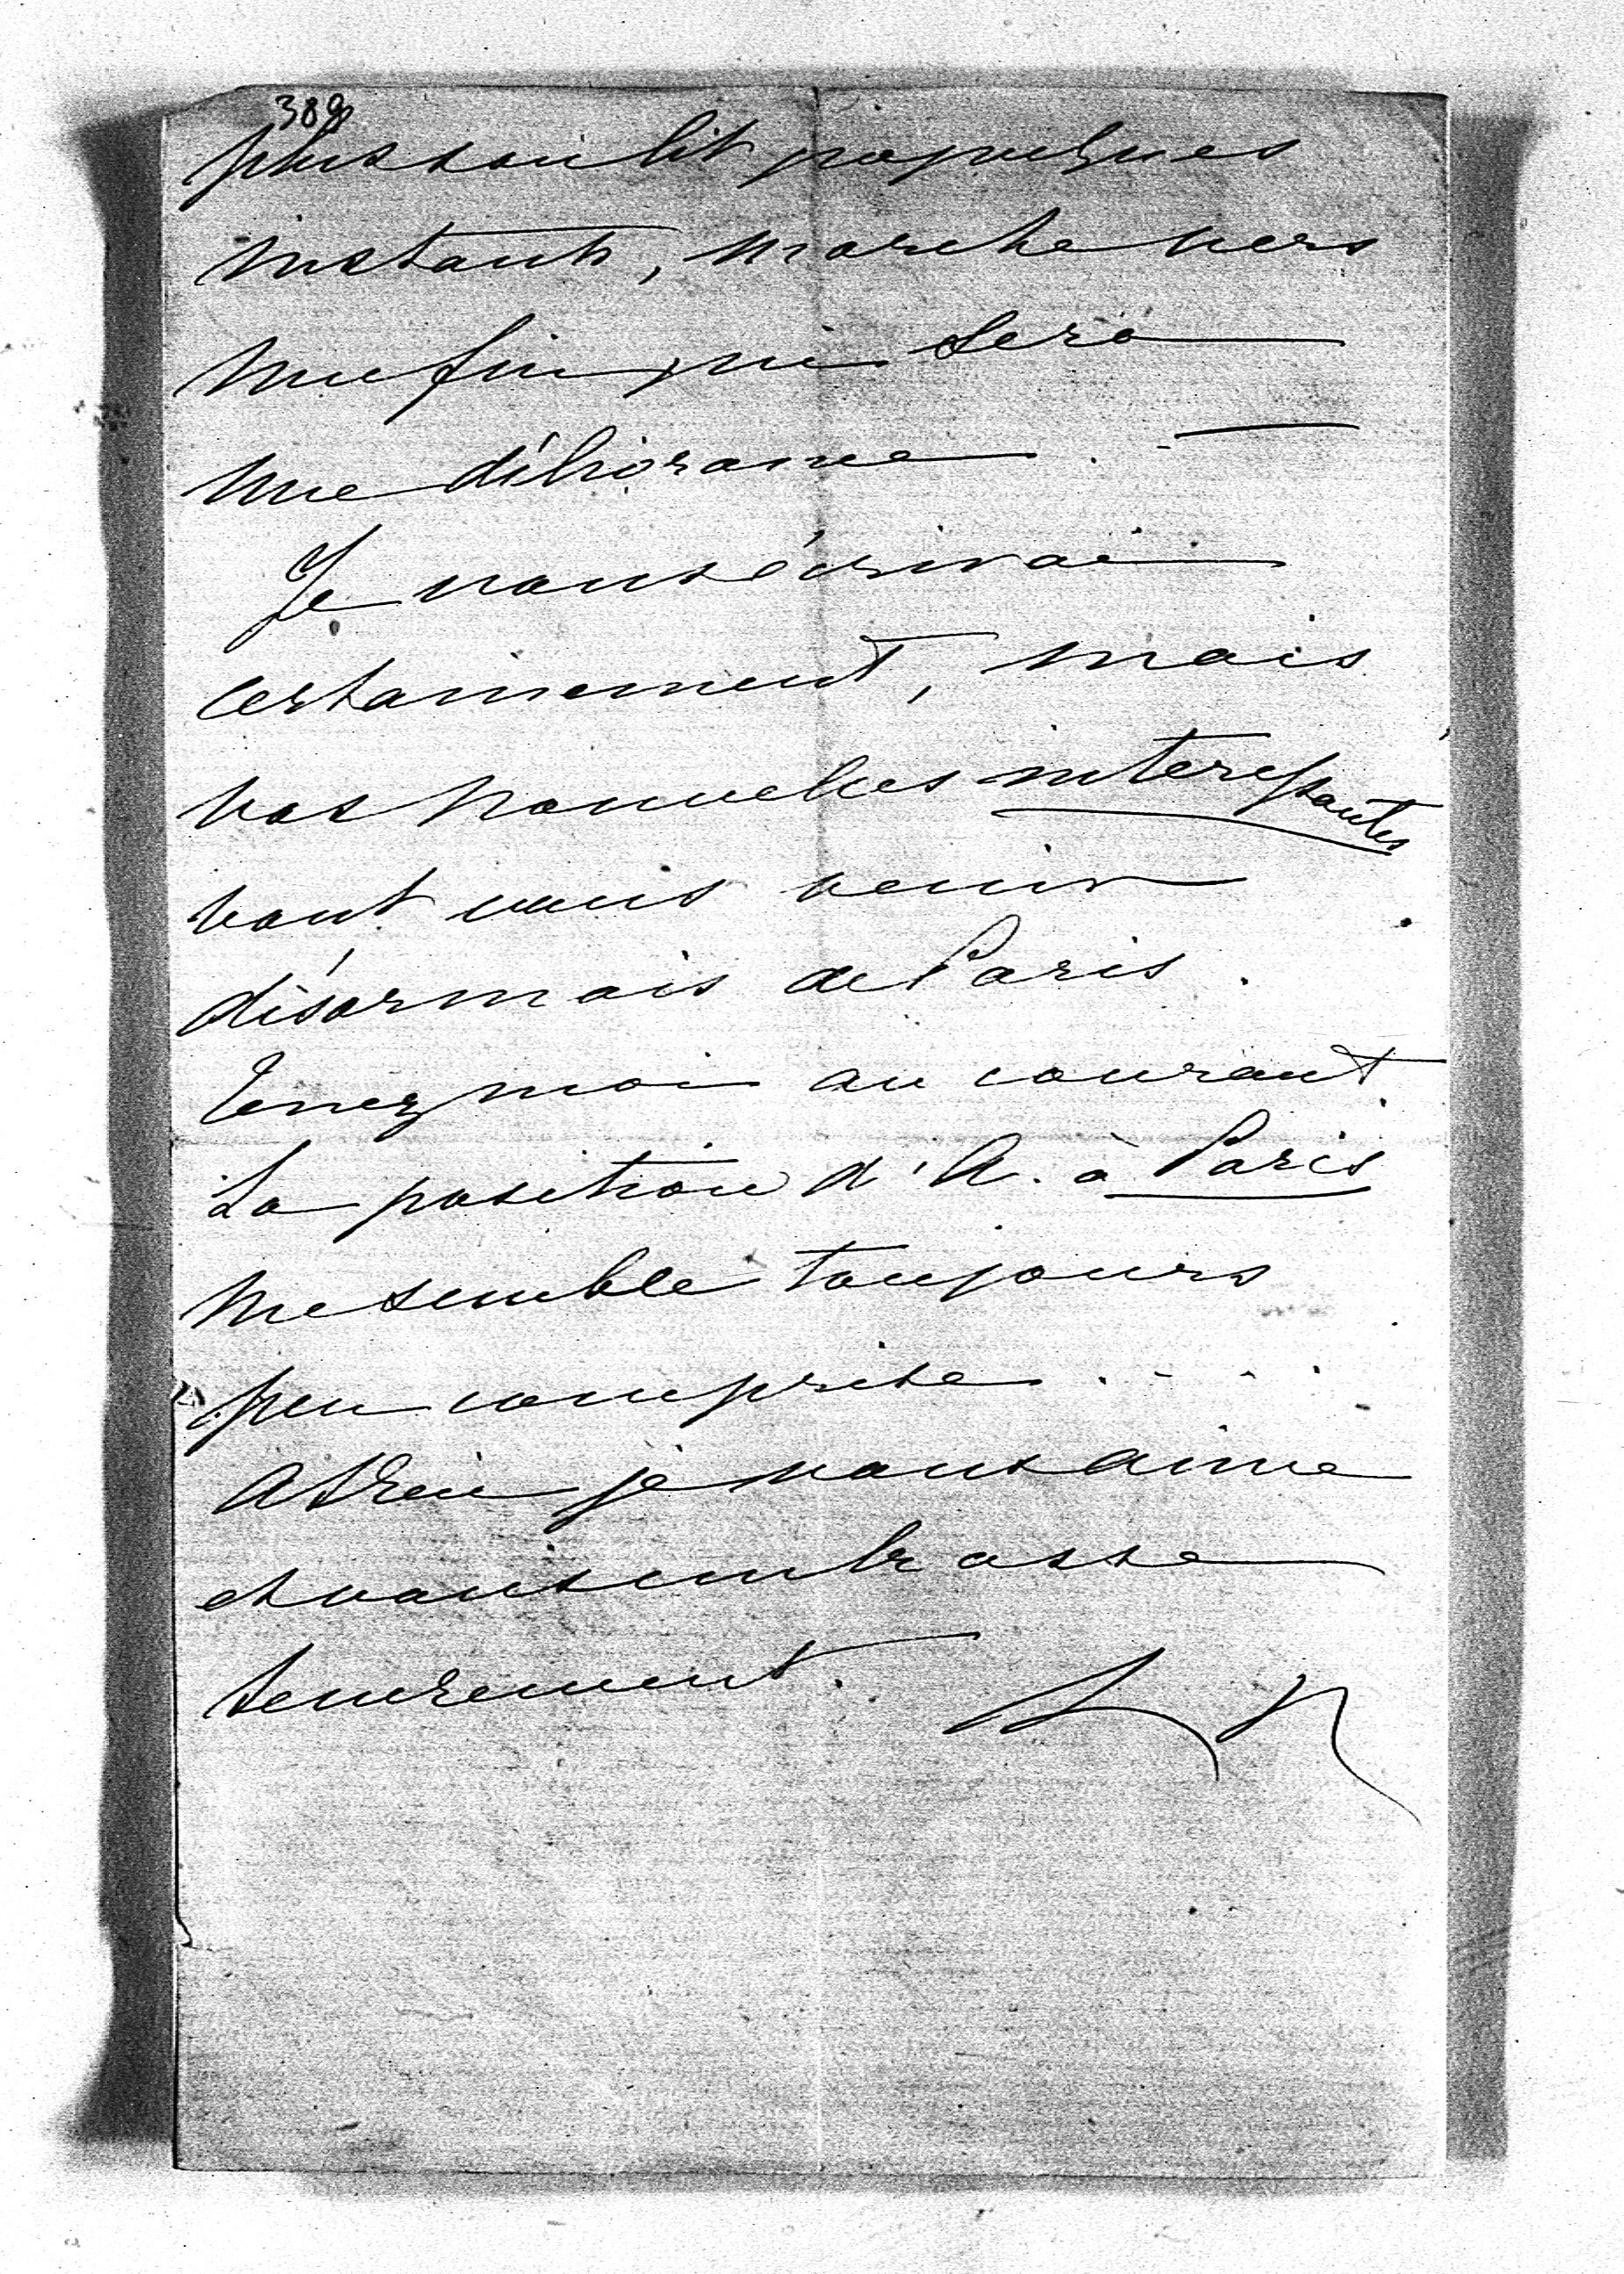 389
plus son lit quelques
instants, marche vers
une fin qui sera
une délivrance. —
Je vous écrirai
certainement, mais
vos nouvelles interessantes
vont vous venir
désormais de Paris.
Tenez moi au courant.
La position d'A. à Paris
me semble toujours
peu comprise . . . .
Adieu je vous aime
et vous embrasse
tendrement.